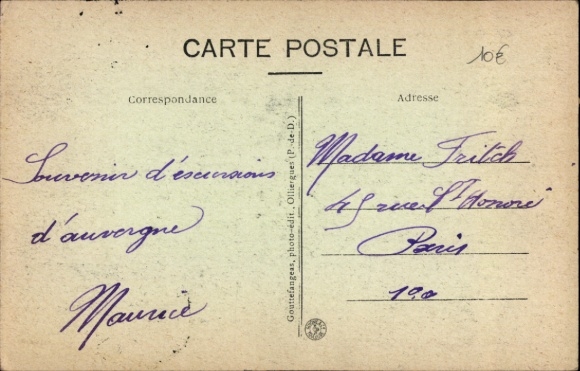 CARTE POSTALE
10€
Correspondance
Adresse
Souvenir d'escursions
d'auvergne
Maurice
Gouttefangeas, photo-édit., Olliergues (P.-de-D.)
Madame Fritch
45 rue St Honoré
Paris
1er